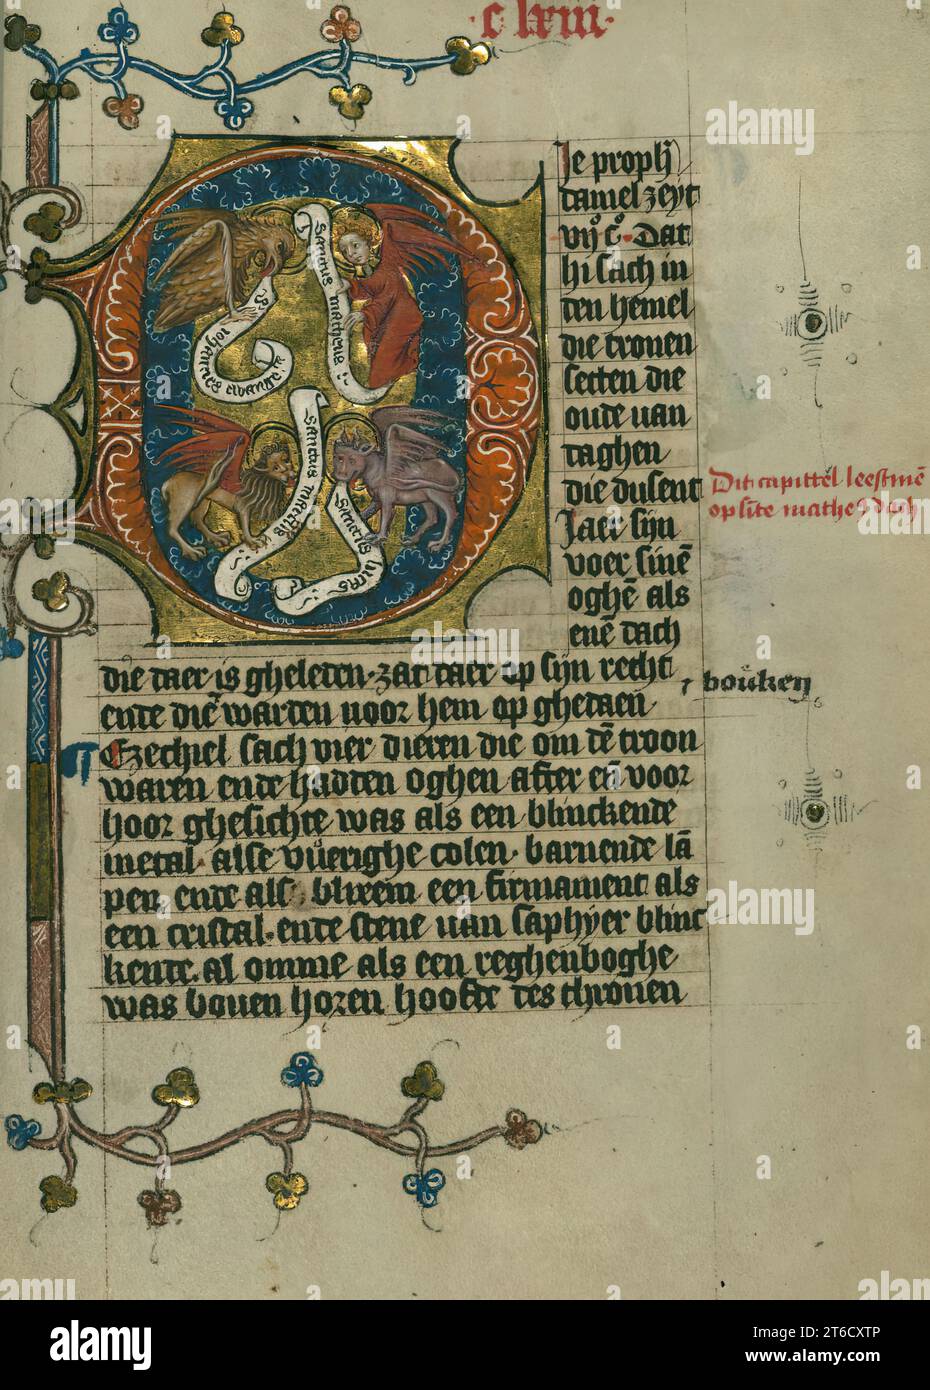 ·c lxiii·
Je proph̄
daniel zeyt
vij c°. Dat
hi sach in
den hemel
die tronen
setten die
oude van
daghen
die dusent
Jaer sijn
voer sinē
oghē als
enē dach
die daer is gheleden. zat daer op sijn recht
ende diē warden voor hem op ghedaen
Ezechiel sach vier dieren die om dē troon
waren ende hadden oghen after eñ voor
hoor ghesichte was als een blinckende
metal. alse vuerighe colen. barnende lā
pen ende als blixem een firmament als
een cristal. ende stene van saphyer blinc
kende. al omme als een reghenboghe
was boven horen hoofde des thronen
Dit capittel leestmē
op sīte matheus dach
bouken
S. iohannes ewange
Sanctus matheus
Sanctus marcus
Sanctus lucas
alamy
Image ID: 2T6CXTP
www.alamy.com